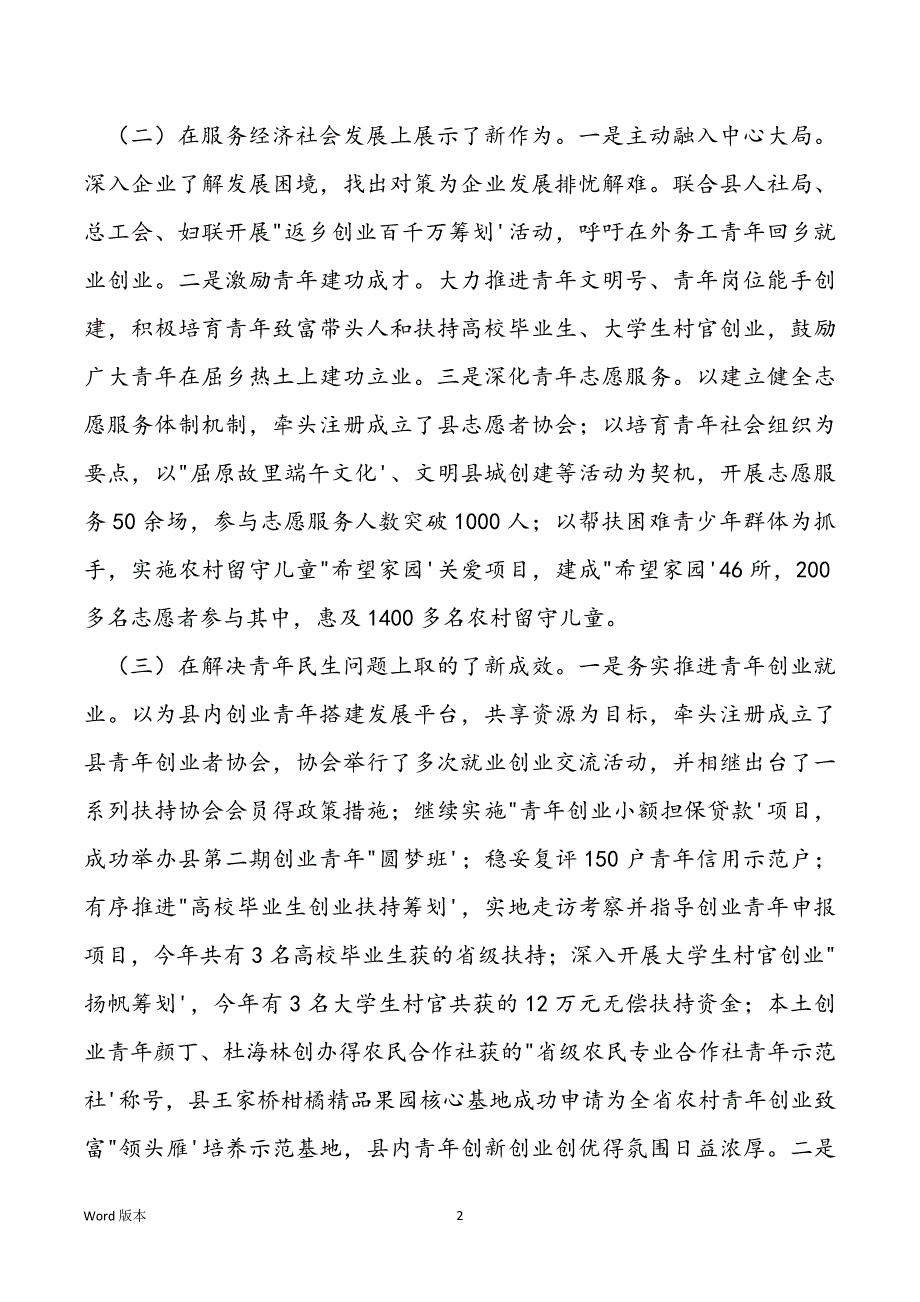 （二）在服务经济社会发展上展示了新作为。一是主动融入中心大局。
深入企业了解发展困境，找出对策为企业发展排忧解难。联合县人社局、
总工会、妇联开展"返乡创业百千万筹划'活动，呼吁在外务工青年回乡就
业创业。二是激励青年建功成才。大力推进青年文明号、青年岗位能手创
建，积极培育青年致富带头人和扶持高校毕业生、大学生村官创业，鼓励
广大青年在屈乡热土上建功立业。三是深化青年志愿服务。以建立健全志
愿服务体制机制，牵头注册成立了县志愿者协会；以培育青年社会组织为
要点，以"屈原故里端午文化'、文明县城创建等活动为契机，开展志愿服
务50余场，参与志愿服务人数突破1000人；以帮扶困难青少年群体为抓
手，实施农村留守儿童"希望家园'关爱项目，建成"希望家园'46所，200
多名志愿者参与其中，惠及1400多名农村留守儿童。
（三）在解决青年民生问题上取的了新成效。一是务实推进青年创业就
业。以为县内创业青年搭建发展平台，共享资源为目标，牵头注册成立了
县青年创业者协会，协会举行了多次就业创业交流活动，并相继出台了一
系列扶持协会会员得政策措施；继续实施"青年创业小额担保贷款'项目，
成功举办县第二期创业青年"圆梦班'；稳妥复评150户青年信用示范户；
有序推进"高校毕业生创业扶持筹划'，实地走访考察并指导创业青年申报
项目，今年共有3名高校毕业生获的省级扶持；深入开展大学生村官创业"
扬帆筹划'，今年有3名大学生村官共获的12万元无偿扶持资金；本土创
业青年颜丁、杜海林创办得农民合作社获的"省级农民专业合作社青年示范
社'称号，县王家桥柑橘精品果园核心基地成功申请为全省农村青年创业致
富"领头雁'培养示范基地，县内青年创新创业创优得氛围日益浓厚。二是
Word版本 2